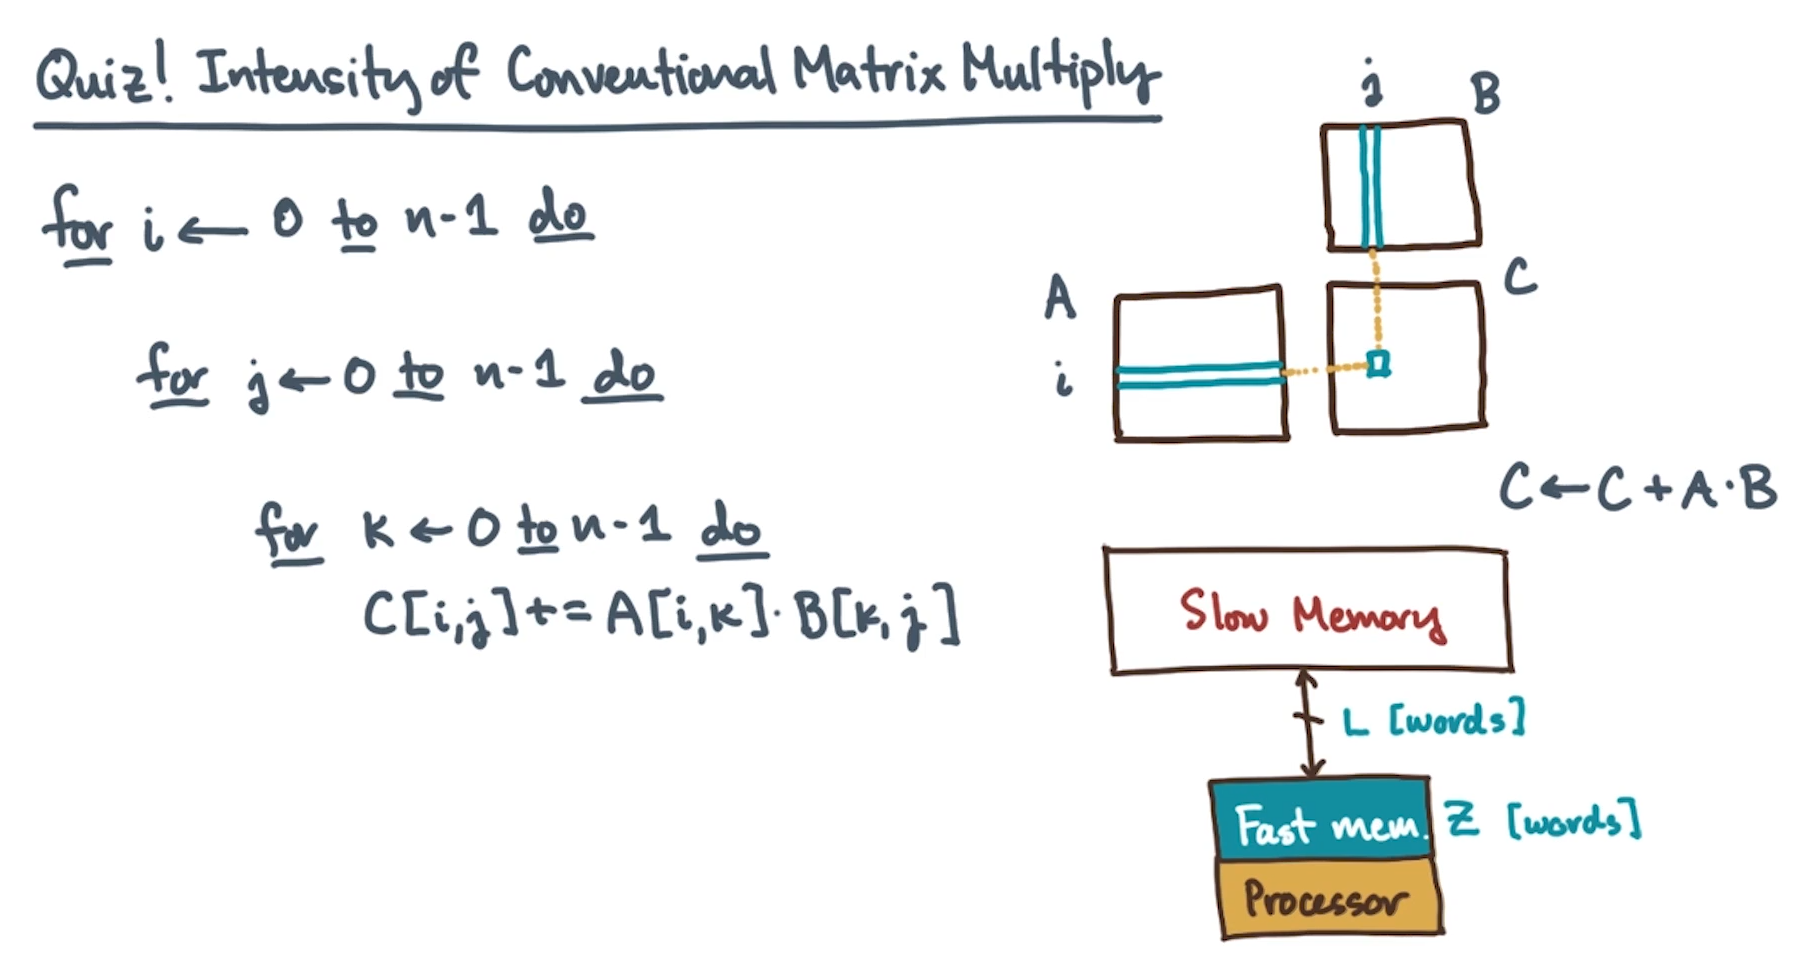 Quiz! Intensity of Conventional Matrix Multiply
for i ← 0 to n-1 do
for j ← 0 to n-1 do
for k ← 0 to n-1 do
C[i,j] += A[i,k] · B[k,j]
j B
A
C
i
C ← C + A · B
Slow Memory
L [words]
Fast mem. Z [words]
Processor